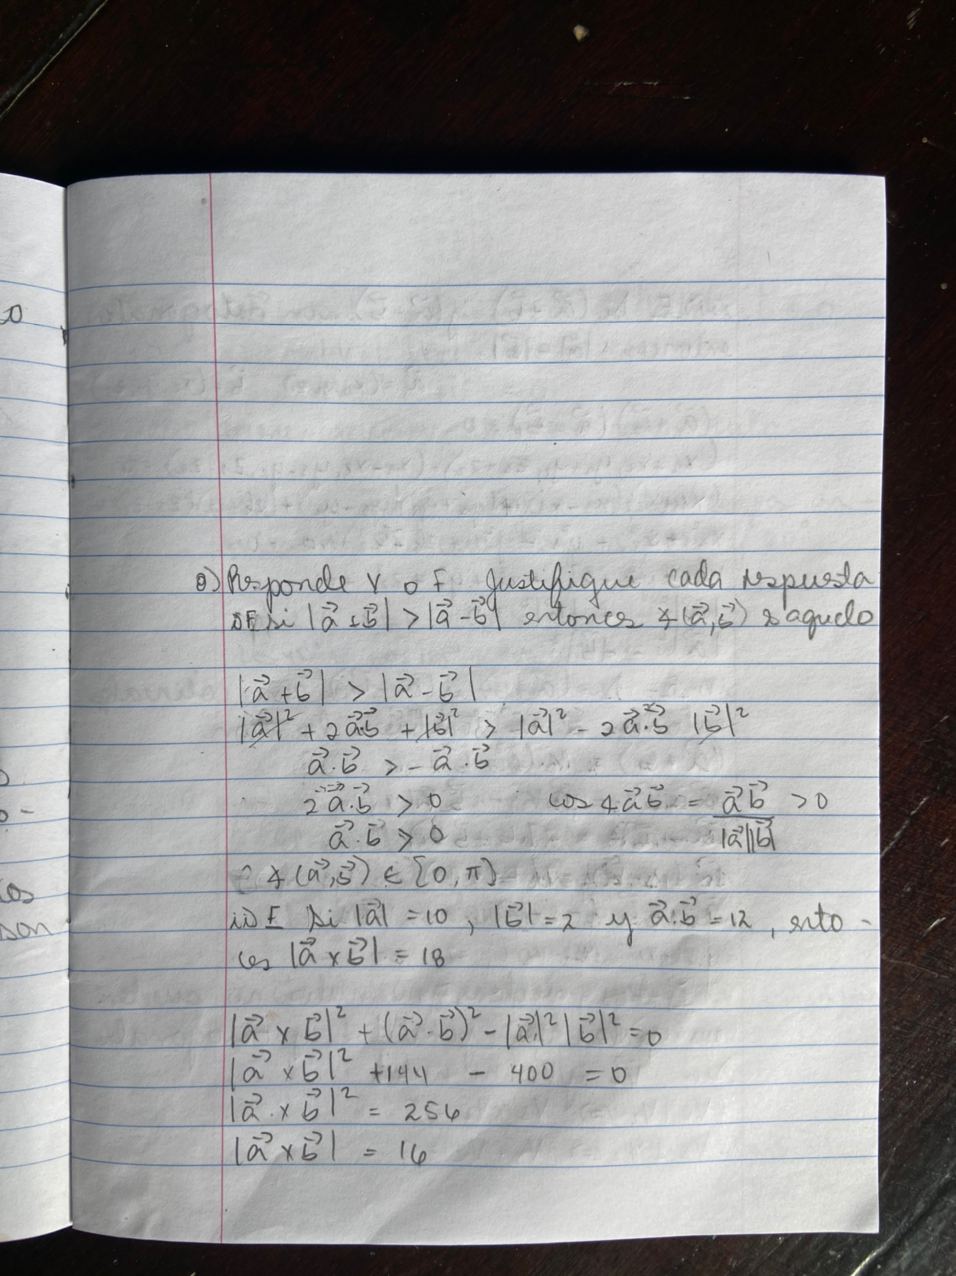 o
o-
cos
son
θ) Responde V o F Justifique cada respuesta
i) F Si |a⃗ + b⃗| > |a⃗ - b⃗| entonces ∡(a⃗, b⃗) es agudo
|a⃗ + b⃗| > |a⃗ - b⃗|
|a⃗|² + 2a⃗·b⃗ + |b⃗|² > |a⃗|² - 2a⃗·b⃗ |b⃗|²
a⃗·b⃗ > -a⃗·b⃗
2a⃗·b⃗ > 0 cos ∡a⃗b⃗ = a⃗b⃗/|a⃗||b⃗| > 0
a⃗·b⃗ > 0
∡(a⃗, b⃗) ∈ [0, π]
ii) F Si |a⃗| = 10, |b⃗| = 2 y a⃗·b⃗ = 12, ento-
ces |a⃗ x b⃗| = 18
|a⃗ x b⃗|² + (a⃗·b⃗)² - |a⃗|²|b⃗|² = 0
|a⃗ x b⃗|² + 144 - 400 = 0
|a⃗ x b⃗|² = 256
|a⃗ x b⃗| = 16